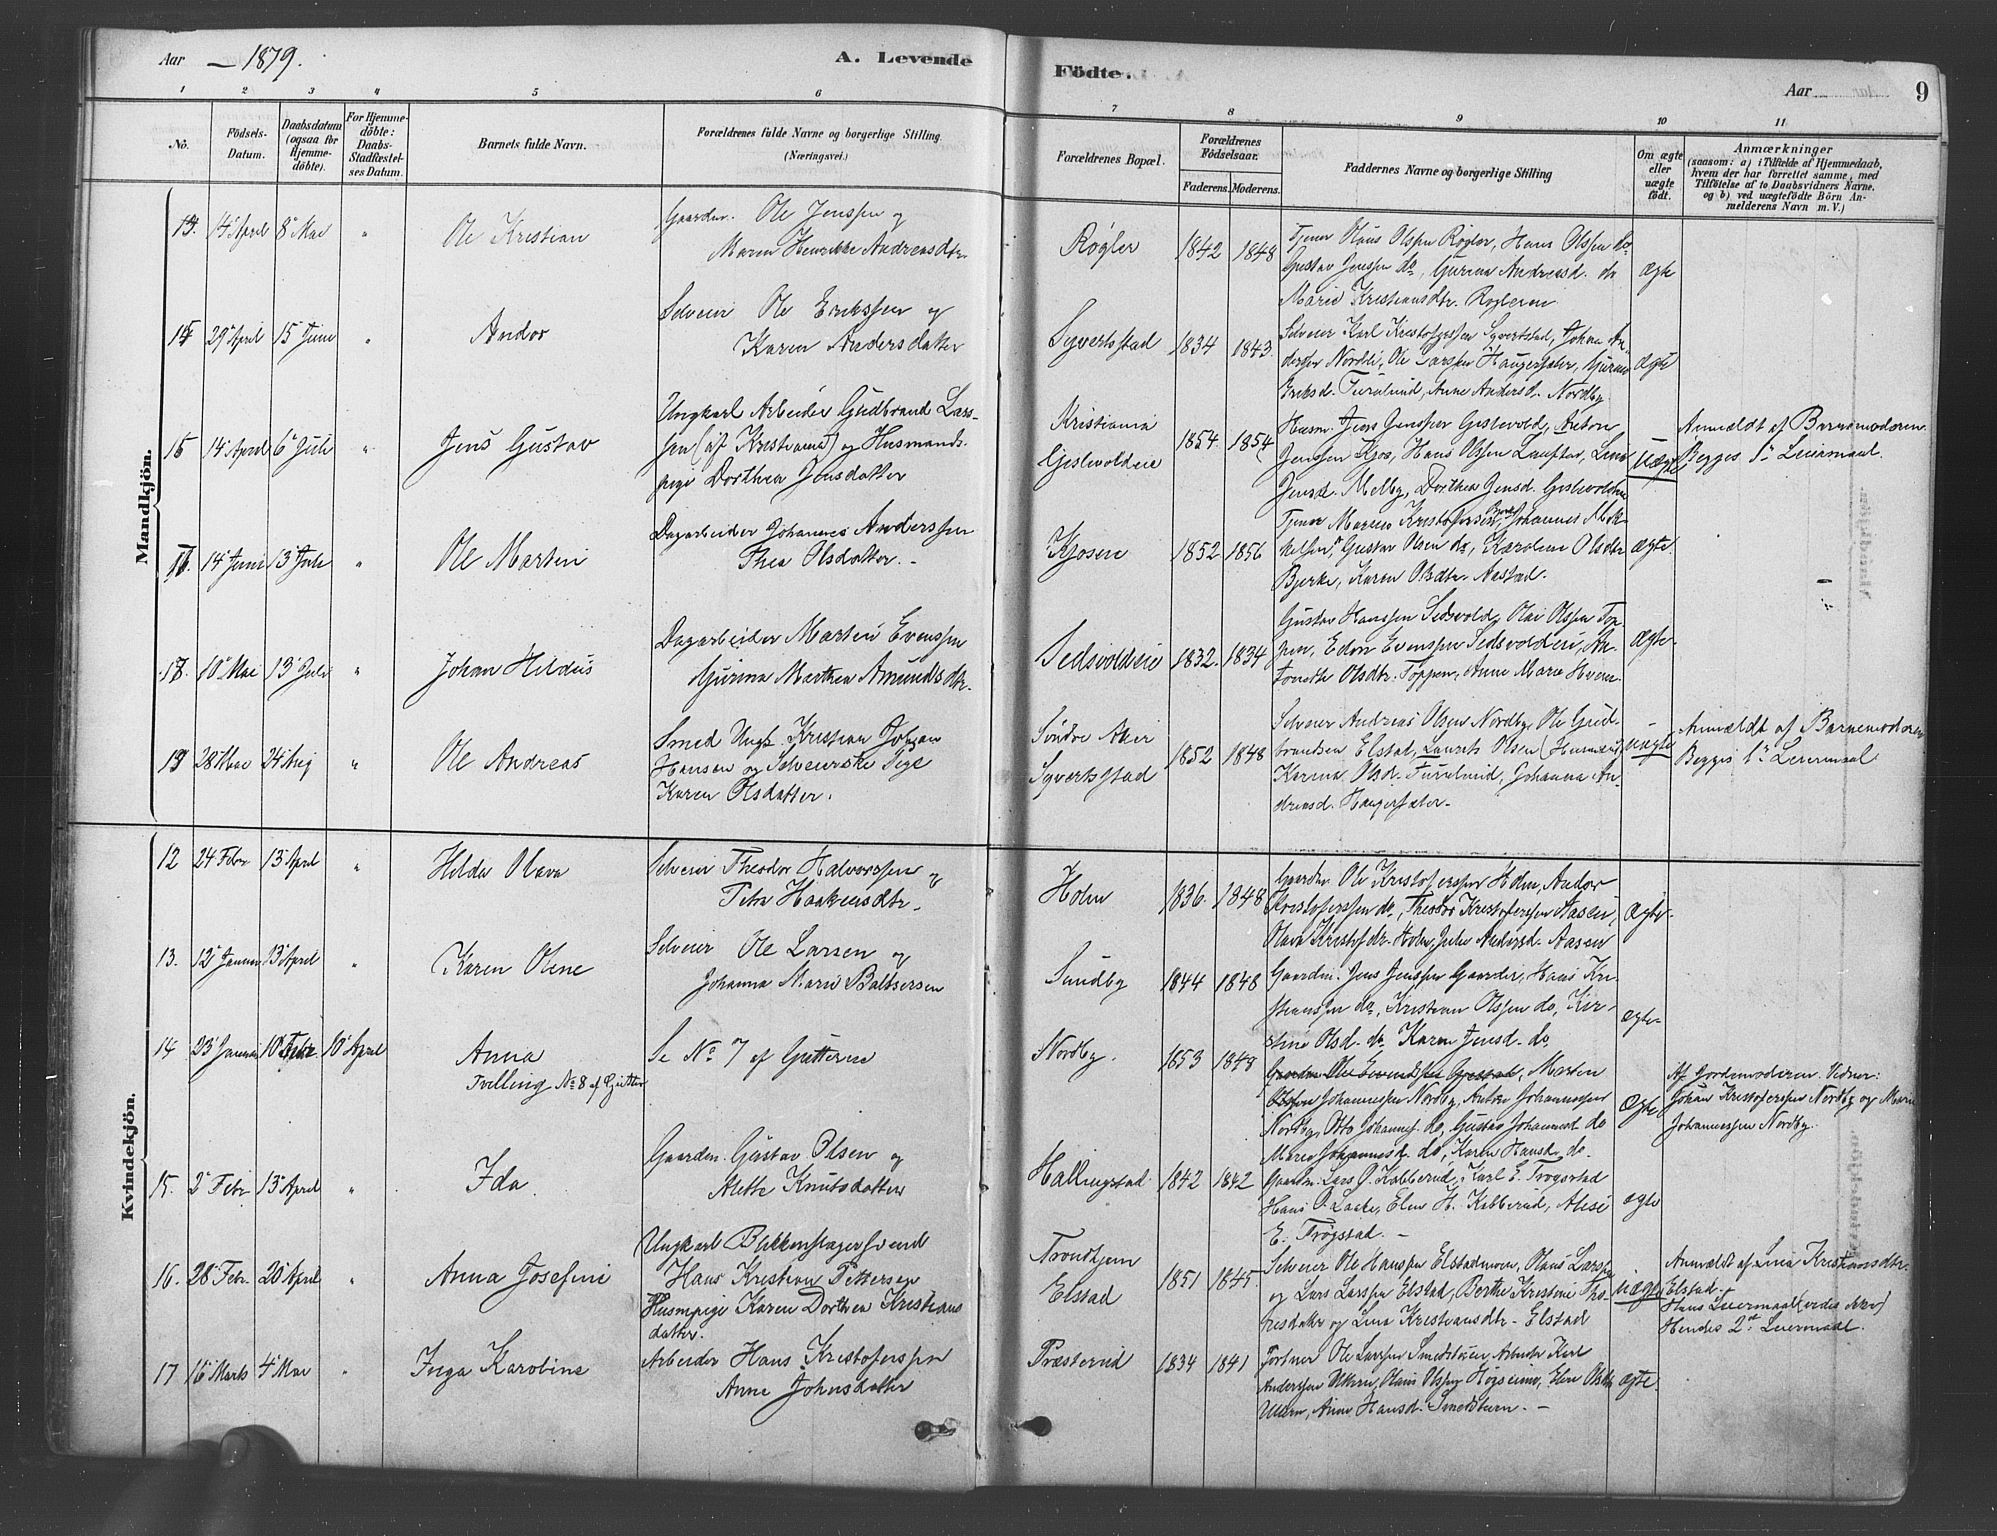 Aar — 1879.
A. Levende Födte.
Aar
9
1 2 3 4 5 6 7 8 9 10 11
No.
Födsels-Datum.
Daabsdatum (ogsaa for Hjemme-döbte).
For Hjemme-döbte: Daabs-Stadfæstel-ses Datum.
Barnets fulde Navn.
Forældrenes fulde Navne og borgerlige Stilling
(Næringsvei.)
Forældrenes Bopæl.
Forældrenes Födselsaar.
Faderens. Moderens.
Faddernes Navne og borgerlige Stilling
Om ægte eller uægte födt.
Anmærkninger
(saasom: a) i Tilfælde af Hjemmedaab,
hvem der har forrettet samme, med
Tilföielse af to Daabsvidners Navne.
og b) ved uægtefödte Börn An-
melderens Navn m. V.)
Mandkjön.
14 April 8 Mai " Ole Kristian
Gaardbr. Ole Jenssen og
Maren Henrikke Andreasdtr.
Røgler 1842 1848
Tjener Olaus Olssen Røgler, Hans Olssen do
Gustav Jenssen do, Gurine Andreasd. do
Marie Kristiansdtr. Rogleren
ægte
29 April 15 Juni " Andor
Selveier Ole Erikssen og
Karen Andersdatter
Syvertstad 1834 1843.
Selveier Karl Kristofersen Syvertstad, Johan An-
dersen Nordli, Ole Larssen Haugersæter,
Eriksd. Furulund, Anne Andersd. Nordby
ægte
15 14 April 6 Juli " Jens Gustav
Ungkarl Arbeider Gudbrand Lars-
sen (af Kristiania) og Husmands-
pige Dorthea Jensdatter
Kristiania
Gislevoldeie
1854 1854
Husm. Jens Jenssen Gislevold, Anton
Jenssen Kjos, Hans Olssen
Jensd. Melby, Dorthea Jensd.
uægte
Anmældt af Barnemoderen
Begges 1ste Leiermaal.
16. 14 Juni 13 Juli " Ole Martin
Dagarbeider Johannes Anderssen
Thea Olsdatter. -
Kjosen 1852 1856
Tjener Marius Kristofersen, Johannes Mik-
kelsen, Gustav Olsen do, Karoline Olsdtr
Bjerke, Karen Olsdtr. Aastad.
ægte
17. 10 Mai 13 Juli " Johan Hildus
Dagarbeider Martin Evenssen
Gurina Marthea Amundsdtr.
Sedsvoldeie 1832. 1834
Gustav Hanssen Sedsvold, Olai Olssen Top-
pen, Edon Evenssen Sedsvoldeie, An-
tonette Olsdtr. Toppen, Anne Marie
ægte
28 Mai 24 Aug " Ole Andreas
Smed Ungk. Kristian Johan
Hansen og Selveierske Pige
Karen Olsdatter.
Søndre Aker
Syvertsstad
1852 1848
Selveier Andreas Olsen Nordby, Ole Gud-
brandsen Elstad, Laurits Olsen
Karina Olsdr. Furulund, Johanna An-
dreasd. Haugersæter.
uægte
Anmældt af Barnemoderen
Begges 1ste Leiermaal
Kvindekjön.
12 24 Febr 13 April " Hilda Olava
Selveier Theodor Halvorssen og
Petra Haakensdtr.
Holm 1836. 1848
Gaardbr. Ole Kristoferssen Holm, Andor
Kristoferssen do, Theodor Kristoferssen Aasen,
Olava Kristofdr. Holm, Julie Andersd. Aasen
ægte
13. 12 Januar 13 April " Karen Oline
Selveier Ole Larsen og
Johanna Marie Baltsersen
Sundby 1844 1848
Gaardm. Jens Jenssen Gaarder, Hans Kri-
stianssen do, Kristian Olssen do, Kir-
stine Olsd. do Karen Jensd. do
ægte
14 23 Januar 10 Febr. 10 April
Anna
Tvilling No 8 af Gutter
Se No 7 af Gutterne
Nordby. 1853 1848
Gaardm Ole Evendssen Grestad, Marten
Olssen Johannessen Nordby, Anton Johannessen
Nordby, Otto Johannes. do, Gustav Johannesd do
Maren Johannesd. do, Karen Hansd. do.
ægte
Af Jordemoderen. Vidner:
Johan Kristoferssen Nordby og Maren
Johannessen Nordby.
15. 2 Febr 13 April " Ida
Gaardm. Gustav Olsen og
Alette Knutsdatter
Hallingstad 1842 1842
Gaardm. Lars O. Kabberud, Karl E. Trøgstad
Hans P. Laake, Elen H. Kabberud, Alise
E. Trøgstad. -
ægte
16. 28 Febr. 20 April " Anna Josefine
Ungkarl Blikkenslagersvend
Hans Kristian Pettersen
Huusmpige Karen Dorthea Kristians
datter.
Trondhjem
Elstad
1851 1845
Selveier Ole Hanssen Elstadmoen, Olaus Larssen
og Lars Larssen Elstad, Berthe Kristine Tho-
resdatter og Lina Kristiansdtr. Elstad
uægte
Anmældt af Lina Kristiansdtr.
Elstad.
Hans Leiermaal (vides ikke)
Hendes 2det Leiermaal.
17 16 Marts 4 Mai " Inga Karoline
Arbeider Hans Kristoferssen
Anne Johnsdatter
Præsterud 1834 1841
Forsner Ole Larssen Smedstuen Arbeider Karl
Anderssen Ullern, Olaus Olssen, Elen Olsdtr
Ullern, Anne Hansd. Smedstuen. -
ægte.